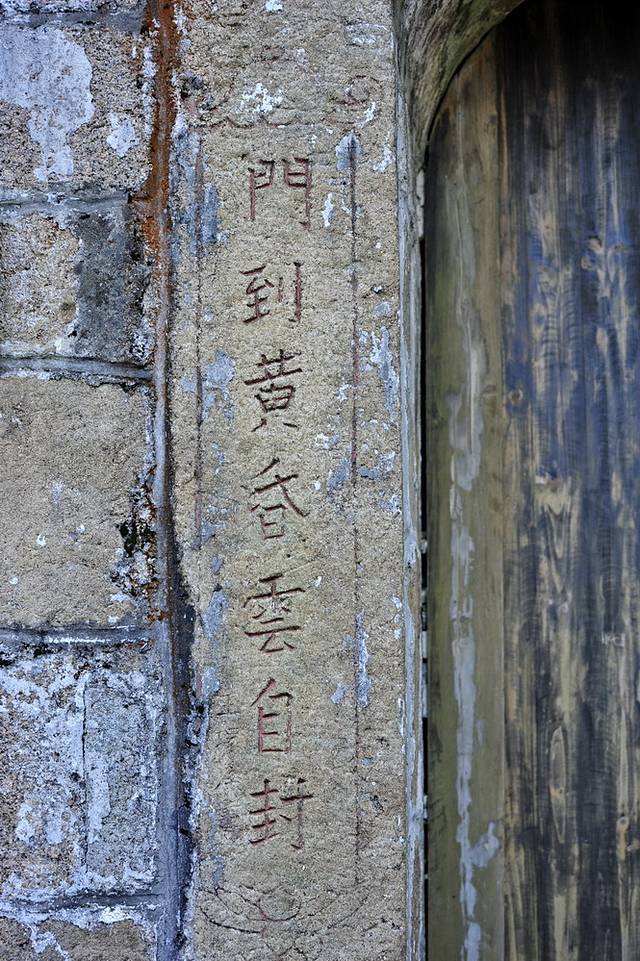 門到黄昏雲自封